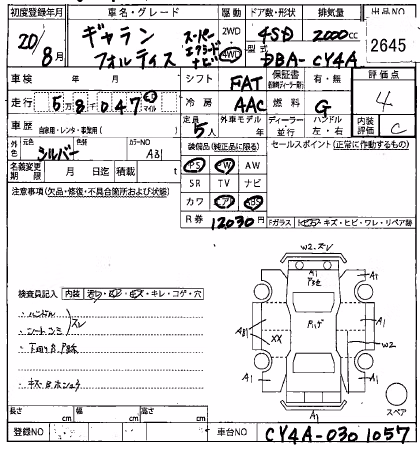 初度登録年月 車名・グレード 駆動 ドア数・形状 排気量 出品NO
20/8月 ギャラン フォルティス スーパー エクシード ナビ 2WD 4WD 4SD 2000cc 2645
型式 DBA-CY4A
車検 年 月 シフト FAT 保証書 有・無 評価点
走行 58047 km マイル 冷房 AAC 燃料 G 4
車歴 自家用・レンタ・事業用( ) 定員 5人 外車モデル 年 ディーラー 並行 ハンドル 左・右 内装評価 C
外色 元色 シルバー 色替 カラーNO A31 装備品(純正品に限る) セールスポイント(正常に作動するもの)
名義変更期限 月 日迄 積載 t PS PW AW
注意事項(欠品・修復・不具合箇所および状態) SR TV ナビ
カワ エアB ABS
R券 12030円 Fガラス トビ石・キズ・ヒビ・ワレ・リペア跡
W2.ズレ
A1
A1
A1
検査員記入 内装 ヨゴレ・シミ・キズ・キレ・コゲ・穴
ハンドル スレ
シートシミ
XX
W2
A1
A1
A1
スペア
長さ cm 幅 cm 高さ cm
登録NO 車台NO CY4A-0301057